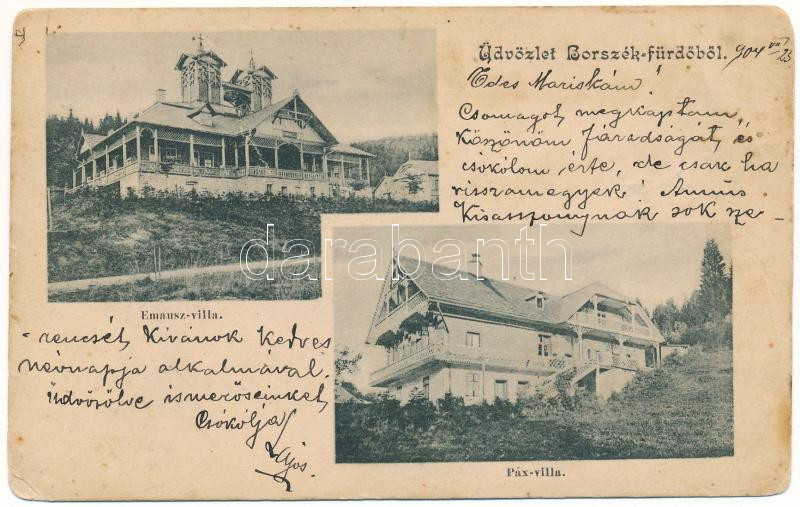 Üdvözlet Borszék-fürdőből.
904 VII/25
Édes Mariskám!
Csomagot megkaptam,
köszönöm fáradságát, és
csókolom érte, de csak ha
visszamegyek! Annus
Kisasszonynak sok sze-
darabanth
Emausz-villa.
-rencsét kivánok kedves
névnapja alkalmával.
Üdvözölve ismerőseinket
Csókolja
Lajos.
Páx-villa.